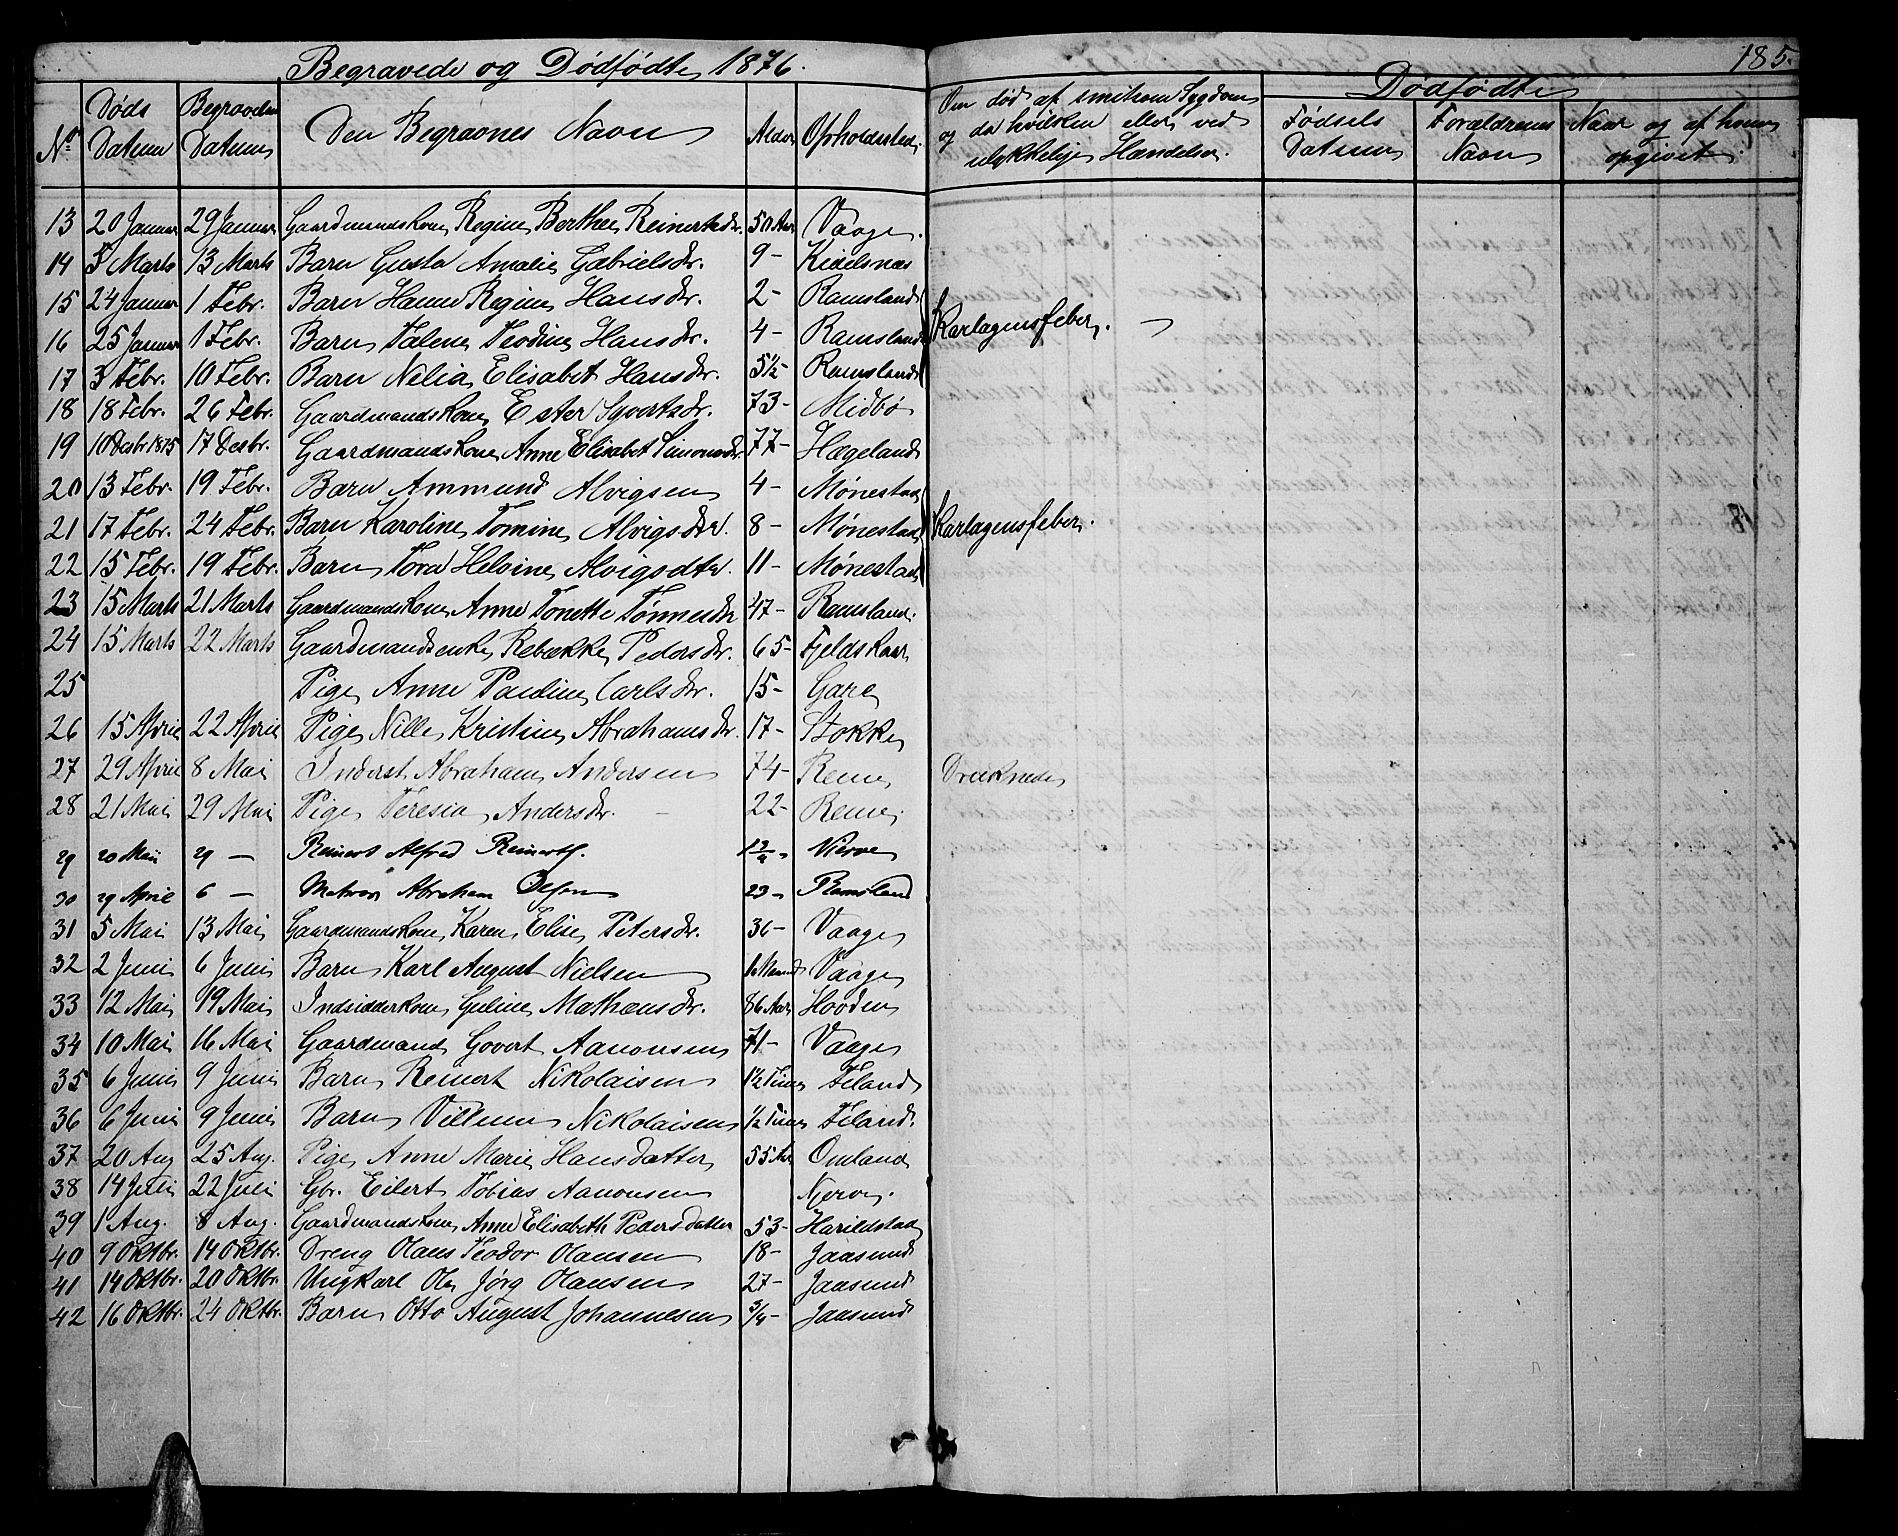 Begravede og Dødfødte 1876.
185.
Nr. Døds Datum Begravelses Datum Den Begravnes Navn Alder Opholdssted.
Om død af smitsom Sygdom
og da hvilken eller ved
ulykkelig Hændelse.
Dødfødte
Fødsels Datum Forældrenes Navn Naar og af hvem opgivet.
13 20 Januar 29 Januar Gaardmandskone Regine Berthee Reinertsdr. 50 Aar Vaage.
14 5 Marts 13 Marts Barn Gusta Amalie Gabrielsdr. 9 - Kidelsnæs
15 24 Januar 1 Febr. Barn Hanne Regine Hansdr. 2 - Ramsland
16 25 Januar 1 Febr. Barn Talene Teodine Hansdr. 4 - Ramsland Karlagensfeber.
17 3 Febr. 10 Febr. Barn Nelia Elisabet Hansdr. 5½ - Ramsland
18 18 Febr. 26 Febr. Gaardmandskone Ester Syvertsdr. 73 - Midbø
19 10 Desbr 1875 17 Desbr. Gaardmandskone Anne Elisabet Simonsdr. 77 - Hægeland
20 13 Febr. 19 Febr. Barn Ammund Alvigsen 4 - Mønestad
21 17 Febr. 24 Febr. Barn Karoline Tomine Alvigsdtr. 8 - Mønestad Karlagensfeber.
22 15 Febr. 19 Febr. Barn Tora Helvine Alvigsdtr. 11 - Mønestad
23 15 Marts 21 Marts Gaardmandskone Anne Tonette Tønnesdr 47 - Ramsland.
24 15 Marts 22 Marts Gaardmandsenke Rebække Pedersdr. 65 - Fjeldskaar
25 Pige Anne Pauline Carlsdr. 15 - Gare
26 15 April 22 April Pige Nille Kristine Abrahamsdr. 17 - Stokke
27 29 April 8 Mai Inderst Abraham Andersen 74 - Reme Druknede
28 21 Mai 29 Mai Pige Teresia Andersdr. 22 - Reme
29 20 Mai 29 — Reinert Alfred Reinerts.
30 29 April 6 — Matros Abraham Olsen 23 - Ramsland
31 5 Mai 13 Mai Gaardmandskone Karen Elise Petersdr. 36 - Vaage
32 2 Juni 6 Juni Barn Karl August Nielsen 1 Maaned Vaage
33 12 Mai 19 Mai Indsidderkone Guline Mathæusdr. 86 Aar Hovden
34 10 Mai 16 Mai Gaardmand Govert Aanonsen 71 - Vaage
35 6 Juni 9 Juni Barn Reinert Nikolaisen 1½ Time Filand
36 6 Juni 9 Juni Barn Villum Nikolaisen ½ Time Filand.
37 20 Aug 25 Aug. Pige Anne Marie Hansdatter 55 Aar Omland
38 14 Juli 22 Juli Gbr. Eilert Tobias Aanonsen Njerve.
39 1 Aug. 8 Aug. Gaardmandskone Anne Elisabeth Pedersdatter 53 - Harildstad
40 9 Oktbr. 14 Oktbr. Dreng Olaus Teodor Olausen 18 - Jaasund
41 14 Oktbr. 20 Oktbr. Ungkarl Ole Jørg Olausen 27 - Jaasund
42 16 Oktbr. 24 Oktbr. Barn Otto August Johannesen 3/4 - Jaasund